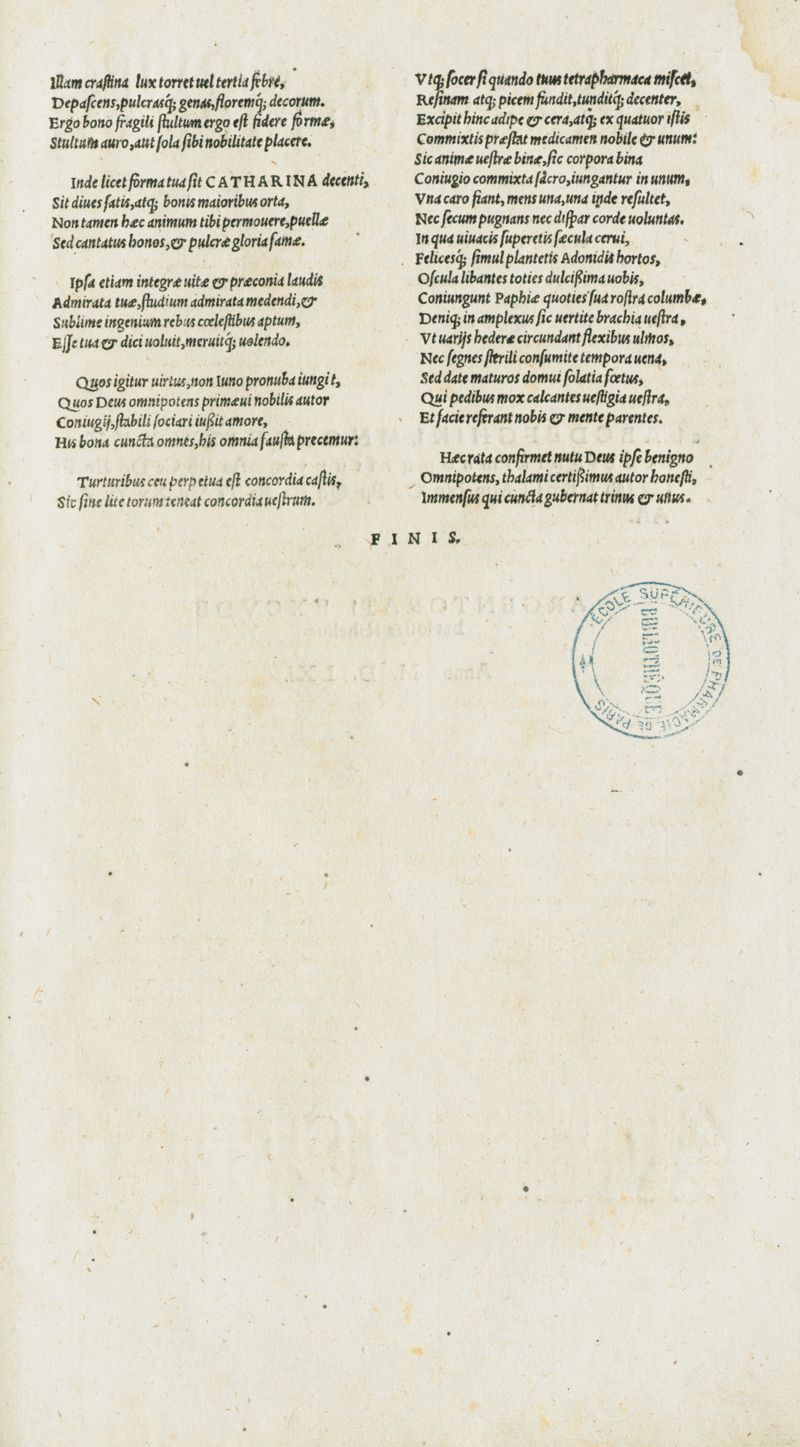 Illam crastina lux torret uel tertia febre,
Depascens, pulcrasq́; genas, floremq́; decorum.
Ergo bono fragili stultum ergo est fidere formæ,
Stultum auro, aut sola sibi nobilitate placere.
Inde licet forma tua sit CATHARINA decenti,
Sit diues satis, atq; bonis maioribus orta,
Non tamen hæc animum tibi permouere, puellæ
Sed cantatus honos, & pulcræ gloria famæ.
Ipsa etiam integræ uitæ & præconia laudis
Admirata tuæ, studium admirata medendi, &
Sublime ingenium rebus cœlestibus aptum,
Esse tua & dici uoluit, meruitq́; uolendo.
Quos igitur uirtus, non Iuno pronuba iungit,
Quos Deus omnipotens primæui nobilis autor
Coniugij, stabili sociari iußit amore,
His bona cuncta omnes, his omnia fausta precemur:
Turturibus ceu perpetua est concordia castis,
Sic sine lite torum teneat concordia uestrum.
Vtq; socer si quando tuus tetrapharmaca miscet,
Resinam atq; picem fundit, tunditq́; decenter,
Excipit hinc adipe & cera, atq; ex quatuor istis
Commixtis præstat medicamen nobile & unum:
Sic animæ uestræ binæ, sic corpora bina
Coniugio commixta sacro, iungantur in unum,
Vna caro fiant, mens una, una inde resultet,
Nec secum pugnans nec dispar corde uoluntas.
In qua uiuacis superetis sæcula cerui,
Felicesq́; simul plantetis Adonidis hortos,
Oscula libantes toties dulcißima uobis,
Coniungunt Paphiæ quoties sua rostra columbæ,
Deniq; in amplexus sic uertite brachia uestra,
Vt uarijs hederæ circundant flexibus ulmos,
Nec segnes sterili consumite tempora uena,
Sed date maturos domui solatia fœtus,
Qui pedibus mox calcantes uestigia uestra,
Et facie referant nobis & mente parentes.
Hæc rata confirmet nutu Deus ipse benigno
Omnipotens, thalami certißimus autor honesti,
Immensus qui cuncta gubernat trinus & unus.
FINIS.
ÉCOLE SUPÉRIEURE DE PHARMACIE DE PARIS
BIBLIOTHÈQUE